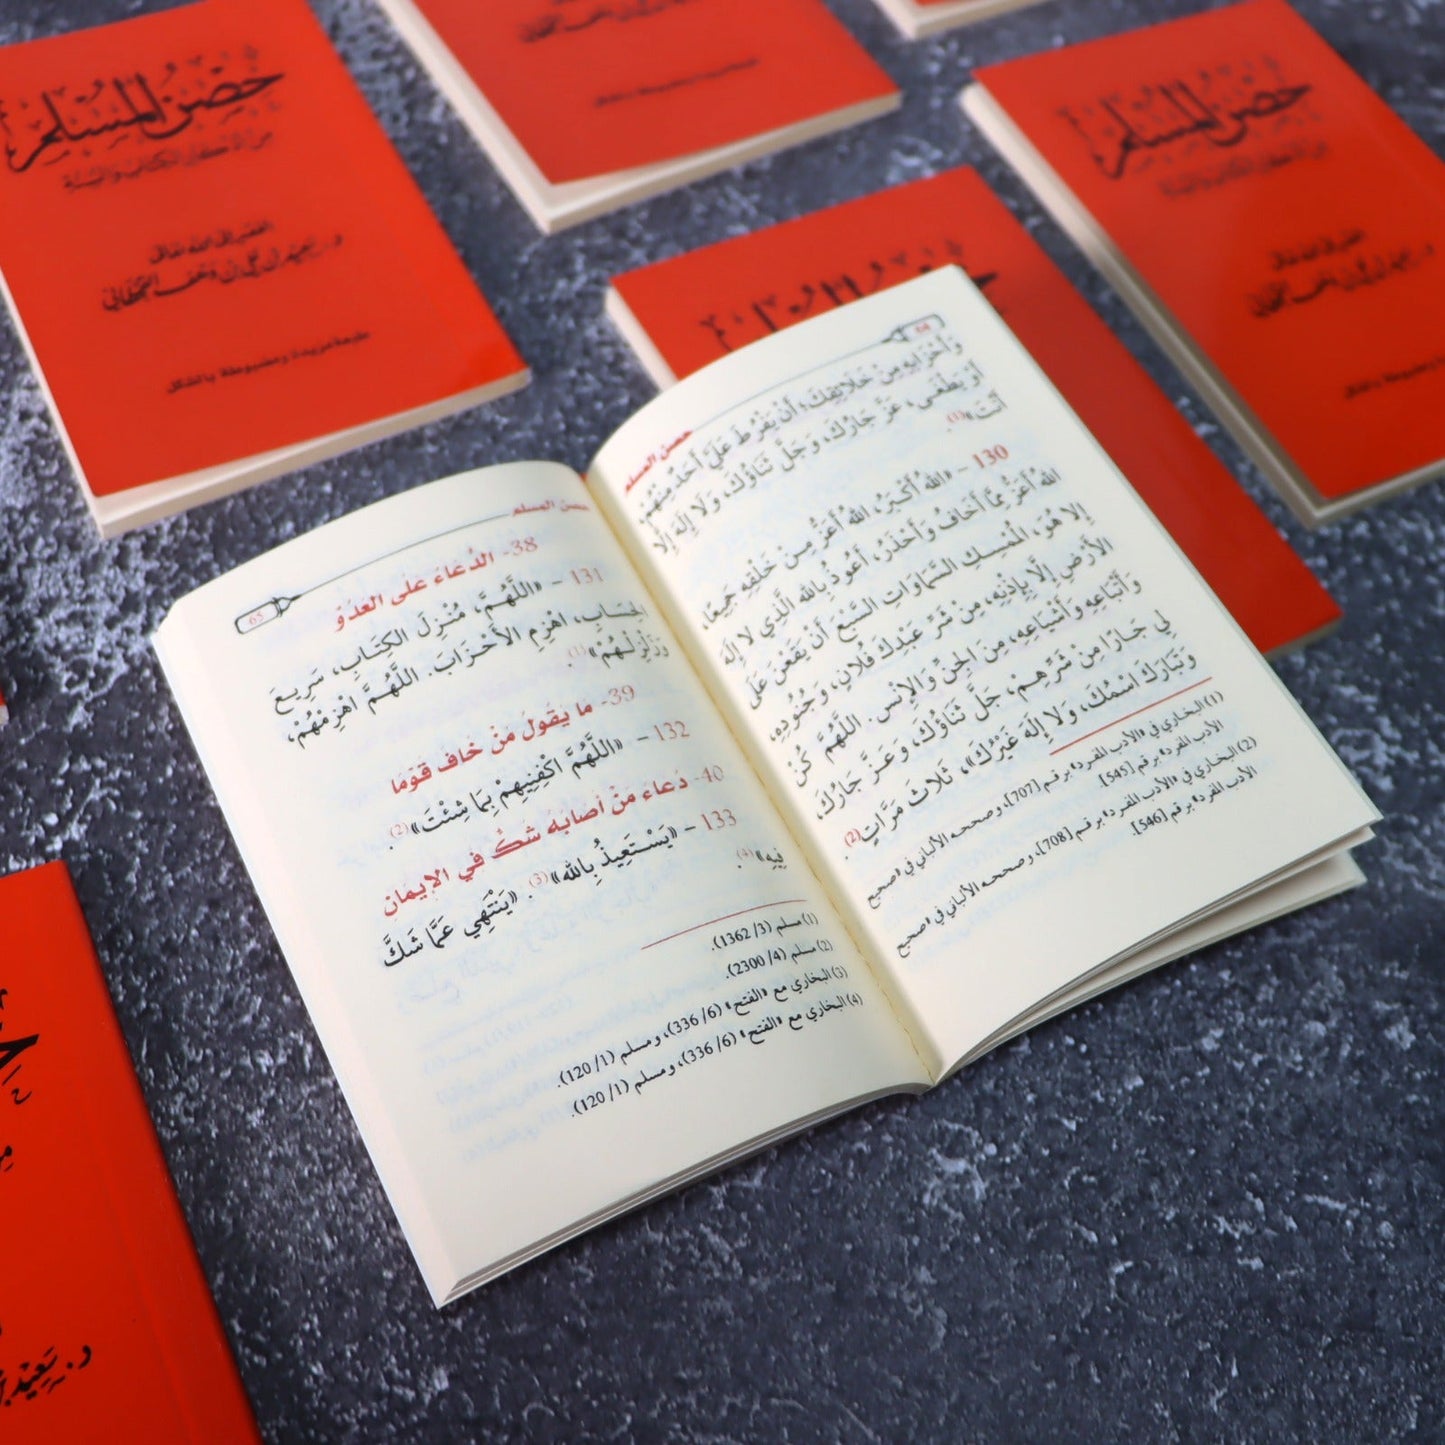 حِصْنُ المُسْلِمِ
مِنْ أَذْكَارِ الكِتَابِ وَالسُّنَّةِ
الفقير إلى الله تعالى
د. سَعِيد بن عَلي بن وَهف القَحْطَانِي
طبعة مزيدة ومضبوطة بالشكل
حِصْنُ المُسْلِمِ
64
حصن المسلم
وَأَحْزَابِهِ مِنْ خَلَائِقِكَ؛ أَنْ يَفْرُطَ عَلَيَّ أَحَدٌ مِنْهُمْ،
أَوْ يَطْغَى، عَزَّ جَارُكَ، وَجَلَّ ثَنَاؤُكَ، وَلَا إِلَهَ إِلَّا
أَنْتَ»(1).
130 – «اللهُ أَكْبَرُ، اللهُ أَعَزُّ مِنْ خَلْقِهِ جَمِيعًا،
اللهُ أَعَزُّ مِمَّا أَخَافُ وَأَحْذَرُ، أَعُوذُ بِاللهِ الَّذِي لا إِلَهَ
إلا هُوَ، الْمُمْسِكِ السَّمَاوَاتِ السَّبْعَ أَنْ يَقَعْنَ عَلَى
الأَرْضِ إِلَّا بِإِذْنِهِ، مِنْ شَرِّ عَبْدِكَ فُلَانٍ، وَجُنُودِهِ،
وَأَتْبَاعِهِ وَأَشْيَاعِهِ، مِنَ الجِنِّ وَالإِنْسِ. اللَّهُمَّ كُنْ
لِي جَارًا مِنْ شَرِّهِمْ، جَلَّ ثَنَاؤُكَ، وَعَزَّ جَارُكَ،
وَتَبَارَكَ اسْمُكَ، وَلَا إِلَهَ غَيْرُكَ»، ثَلَاثَ مَرَّاتٍ(2).
(1) البخاري في «الأدب المفرد» برقم [707]، وصححه الألباني في «صحيح
الأدب المفرد» برقم [545].
(2) البخاري في «الأدب المفرد» برقم [708]، وصححه الألباني في «صحيح
الأدب المفرد» برقم [546].
حصن المسلم
65
38- الدُّعاءُ على العَدُوِّ
131 – «اللَّهُمَّ، مُنْزِلَ الكِتَابِ، سَرِيعَ
الحِسَابِ، اهْزِمِ الأَحْزَابَ. اللَّهُمَّ اهْزِمْهُمْ،
وَزَلْزِلْهُمْ»(1).
39- ما يَقُولُ مَنْ خَافَ قَوْمًا
132 – «اللَّهُمَّ اكْفِنِيهِمْ بِمَا شِئْتَ»(2).
40- دُعاء مَنْ أصَابَهُ شَكٌّ في الإيمَانِ
133 – «يَسْتَعِيذُ بِالله»(3). «يَنْتَهِي عَمَّا شَكَّ
فِيهِ»(4).
(1) مسلم (3/ 1362).
(2) مسلم (4/ 2300).
(3) البخاري مع «الفتح» (6/ 336)، ومسلم (1/ 120).
(4) البخاري مع «الفتح» (6/ 336)، ومسلم (1/ 120).